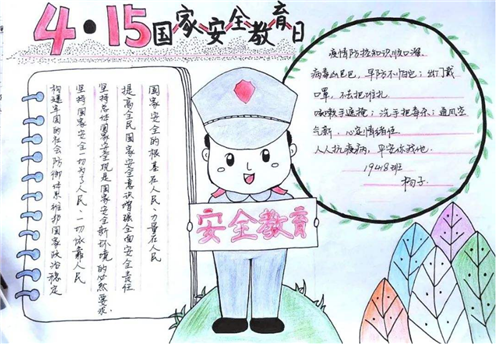 4·15国家安全教育日
国家安全的根基在人民、力量在人民
提高全民国家安全意识增强全面安全责任
坚持总体国家安全观是国家安全新环境的必然要求
坚持国家安全一切为了人民、一切依靠人民
构建牢固的社会防御体系维护国家政治稳定
安全教育
疫情防控知识顺口溜
病毒凶巴巴，早防不怕它：出门戴
口罩，不去把堆扎
咳嗽手遮掩；洗手把毒杀；通风空
气新，心定情绪佳
人人抗疫病，平安你我他
1948班
杨子